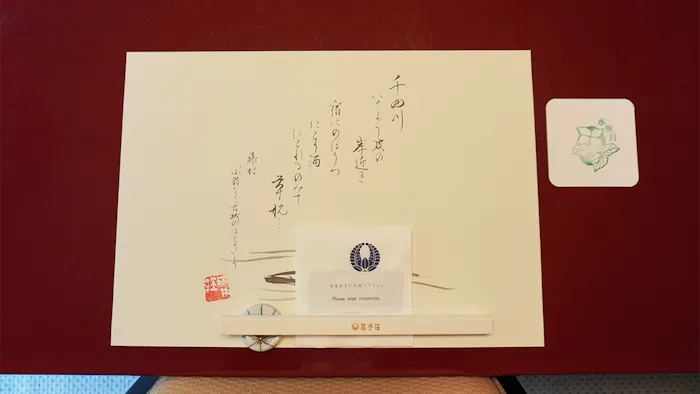 千曲川
いざよふ波の
岸近き
宿にのぼりつ
にごり酒
にごれるのみて
草枕
藤村
小諸なる古城のほとりより
水無月
Please wipe chopsticks.